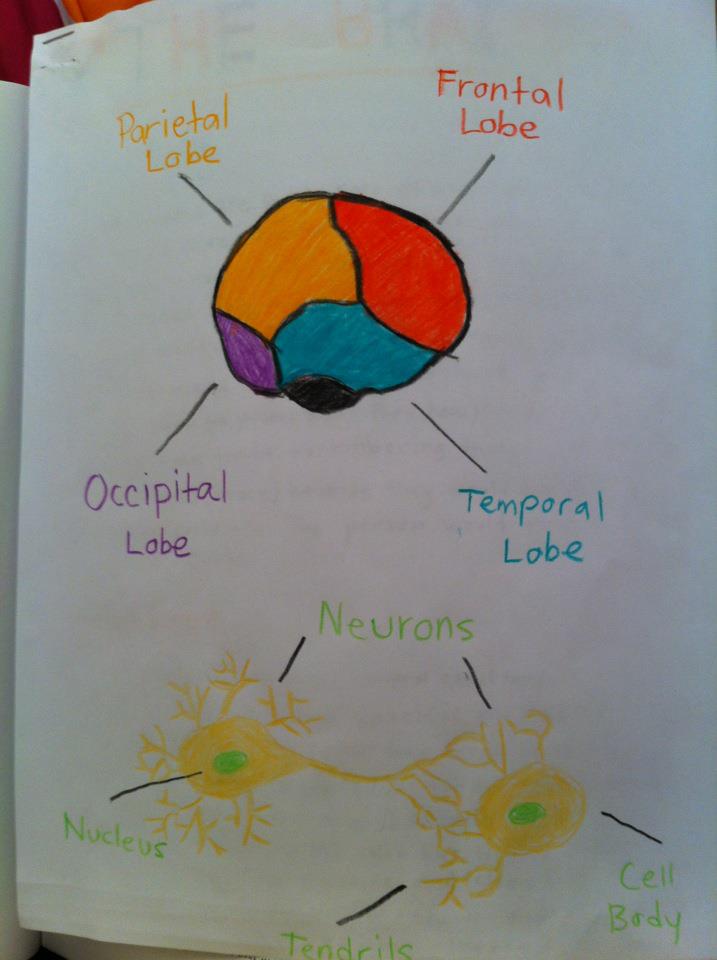 Parietal
Lobe
Frontal
Lobe
Occipital
Lobe
Temporal
Lobe
Neurons
Nucleus
Cell
Body
Tendrils